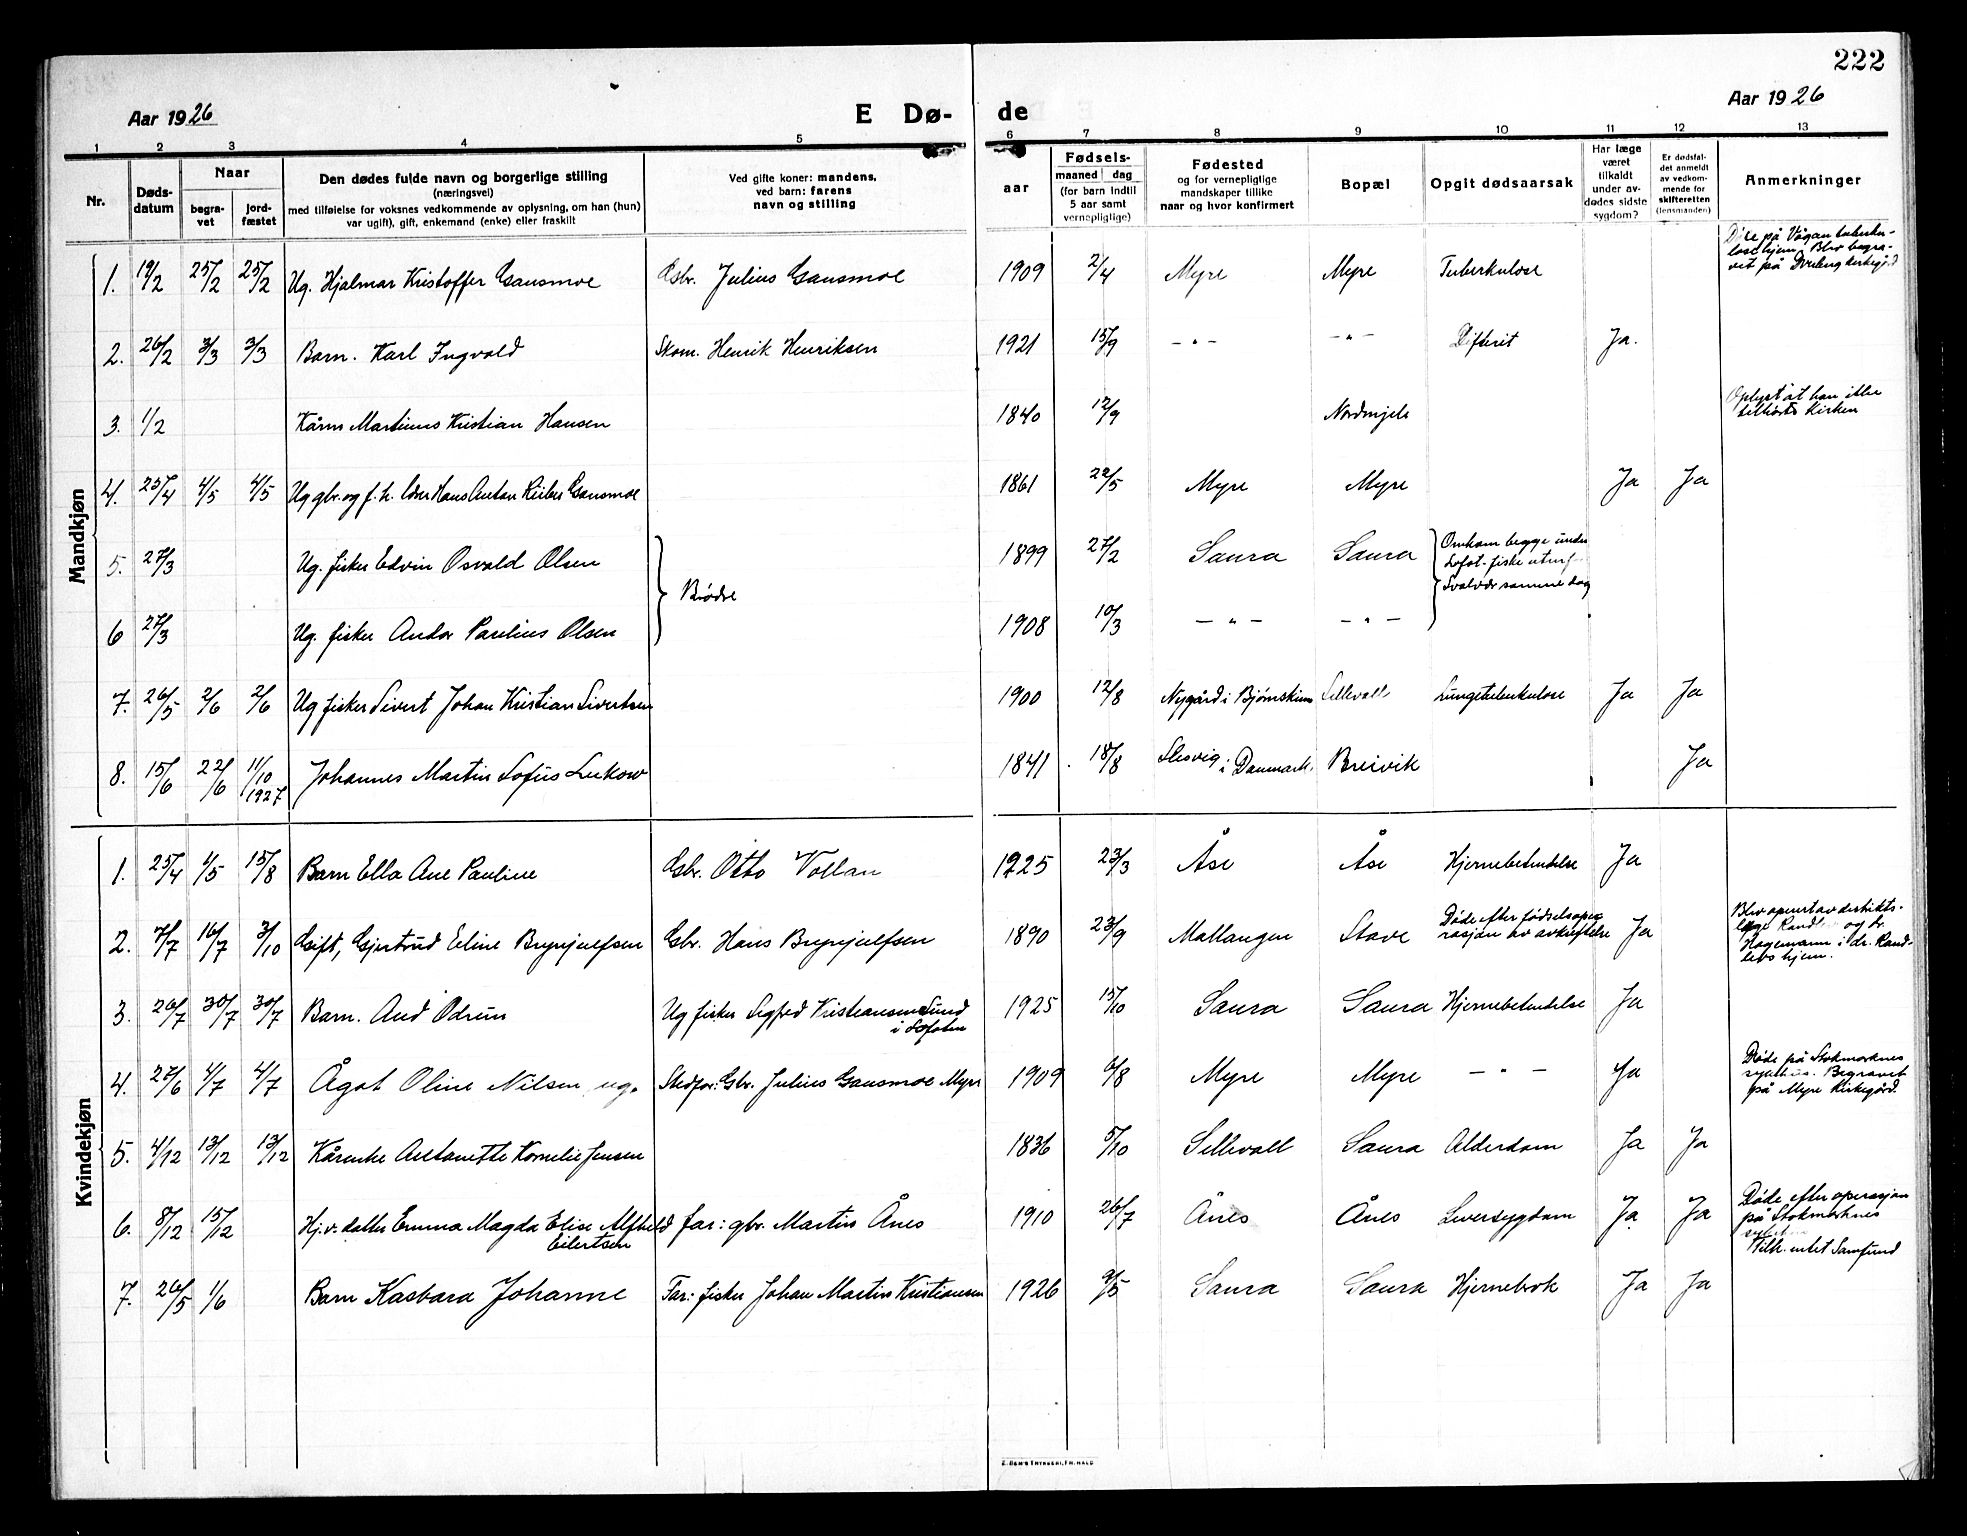 222
Aar 1926
E Dø-
de
Aar 1926
1 2 3 4 5 6 7 8 9 10 11 12 13
Nr.
Døds-
datum
Naar
begra-
vet
jord-
fæstet
Den dødes fulde navn og borgerlige stilling
(næringsvei)
med tilføielse for voksnes vedkommende av oplysning, om han (hun)
var ugift), gift, enkemand (enke) eller fraskilt
Ved gifte koner: mandens,
ved barn: farens
navn og stilling
aar
Fødsels-
maaned dag
(for barn indtil
5 aar samt
vernepligtige)
Fødested
og for vernepligtige
mandskaper tillike
naar og hvor konfirmert
Bopæl
Opgit dødsaarsak
Har læge
været
tilkaldt
under av-
dødes sidste
sygdom?
Er dødsfal-
det anmeldt
av vedkom-
mende for
skifteretten
(lensmanden)
Anmerkninger
Mandkjøn
1. 19/2 25/2 25/2 Ug. Hjalmar Kristoffer Gausmoe Gbr. Julius Gausmoe 1909 2/4 Myre Myre Tuberkulose
Døde på Vågan tuberku-
losehjem. Blev begra-
vet på Dverberg kirkegård
2. 26/2 3/3 3/3 Barn. Karl Ingvald Skom. Henrik Henriksen 1921 15/9 -"- -"- Difterit Ja.
3. 1/2 Kårm. Martinus Kristian Hansen 1840 12/9 Nordmjele
Oplyst at han ikke
tilhørte kirken
4. 25/4 4/5 4/5 Ug gbr. og f. h. lærer Hans Anton Gausmoe 1861 22/5 Myre Myre Ja Ja
5. 27/3 Ug. fisker Edvin Osvald Olsen 1899 27/2 Saura Saura
Brødre
Omkom begge under
Lofot-fiske
Svolvær samme dag
6 27/3 Ug. fisker Andor Paulius Olsen 1908 10/3 -"- -"-
7. 26/5 2/6 2/6 Ug fisker Sivert Johan Kristian Sivertsen 1900 12/8 Nygård i Bjørnskinn Sellevoll Lungetuberkulose Ja Ja
8. 15/6 22/6 11/10 1927 Johannes Martin Sofus Lukow 1841 18/8 Slesvig i Danmark. Breivik Ja
Kvindekjøn
1. 25/4 4/5 15/8 Barn Ella Ane Pauline Gbr. Otto Vollan 1925 23/3 Åse Åse Hjernebetendelse Ja
2. 7/7 16/7 3/10 Gift, Gjertrud Eline Brynjulfsen Gbr. Hans Brynjulfsen 1890 23/9 Mallangen Stave
Døde efter fødselsope-
rasjon av avkreftelse Ja
Blev operert av distrikts-
læge Rand og dr.
Hagemann i dr. Rand-
lebs hjem.
3. 26/7 30/7 30/7 Barn. Aud Odrun Ug fisker Sigfred Kristiansen Sund
i Lofoten
1925 15/10 Saura Saura Hjernebetendelse Ja
4. 27/6 4/7 4/7 Ågot Oline Nilsen ug. Stedfar: Gbr. Julius Gausmoe Myre 1909 6/8 Myre Myre -"- Ja
Døde på Stokmarknes
sykehus. Begravet
på Myre kirkegård.
5. 4/12 13/12 13/12 Kårenke Antonette Kornelie Jensen 1836 5/10 Sellevoll Saura Alderdom Ja Ja
6. 8/12 15/12 Hj.v. datter Emma Magda Elise Alfhild
Eilertsen
far: gbr. Martin Ånes 1910 26/7 Ånes Ånes Leversygdom Ja Ja
Døde efter operasjon
på Stokmarknes
Tilh. intet Samfund
7. 26/5 1/6 Barn Kasbara Johanne Far: fisker Johan Martin Kristiansen 1926 9/5 Saura Saura Hjernebrok Ja Ja